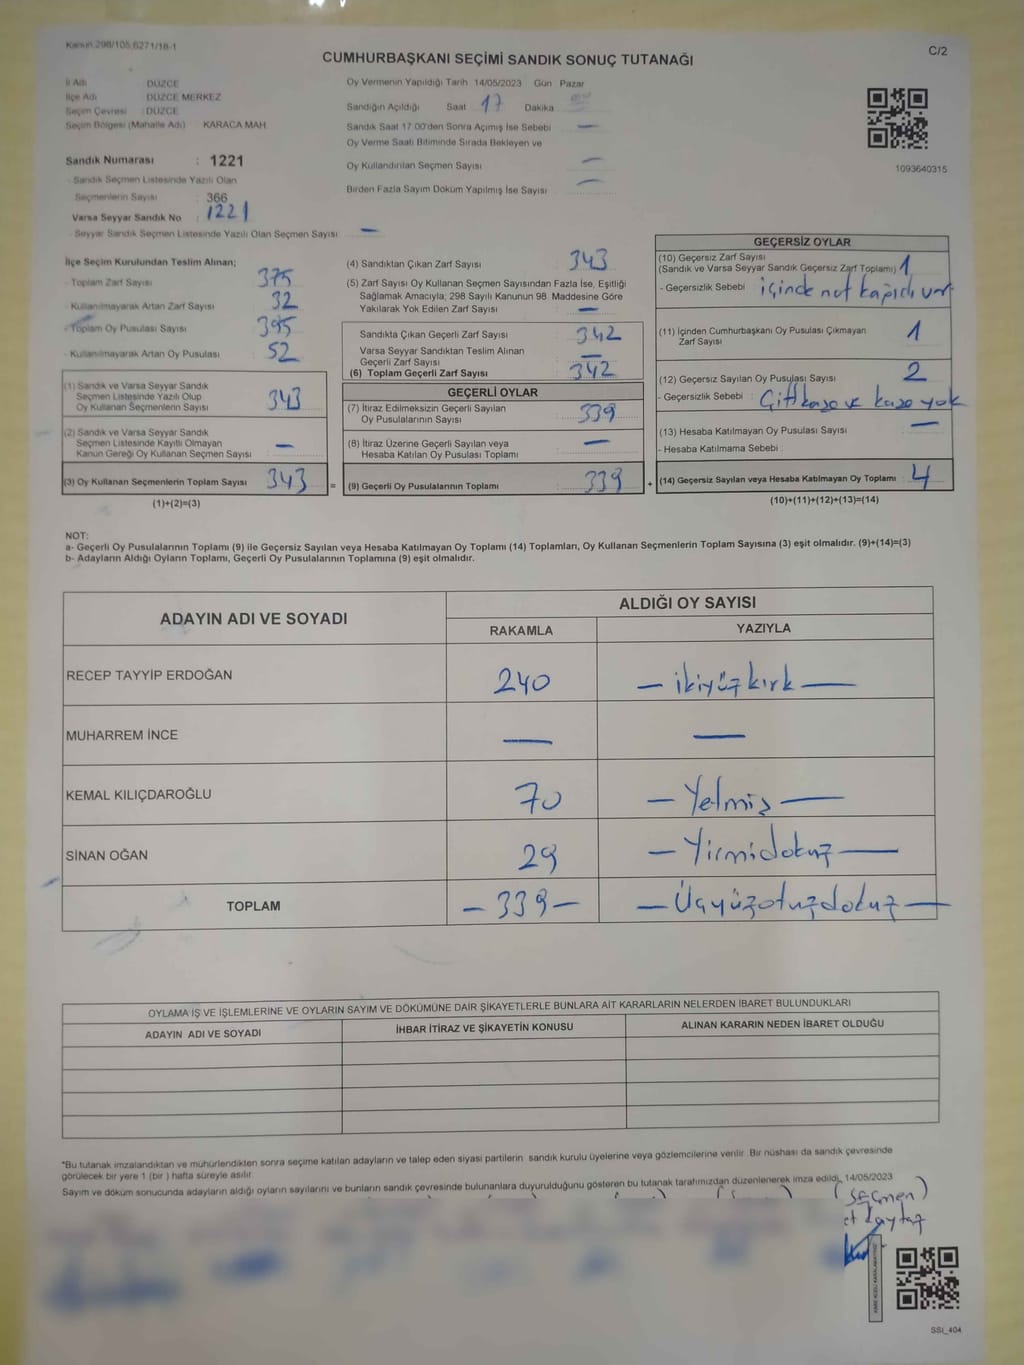 Kanun.298/105,6271/18-1
C/2
CUMHURBAŞKANI SEÇİMİ SANDIK SONUÇ TUTANAĞI
İl Adı : DÜZCE
İlçe Adı : DÜZCE MERKEZ
Seçim Çevresi : DÜZCE
Seçim Bölgesi (Mahalle Adı) KARACA MAH.
Sandık Numarası : 1221
- Sandık Seçmen Listesinde Yazılı Olan
Seçmenlerin Sayısı : 366
Varsa Seyyar Sandık No : 1221
- Seyyar Sandık Seçmen Listesinde Yazılı Olan Seçmen Sayısı —
Oy Vermenin Yapıldığı Tarih 14/05/2023 Gün Pazar
Sandığın Açıldığı Saat 17 Dakika
Sandık Saat 17:00'den Sonra Açımış İse Sebebi —
Oy Verme Saati Bitiminde Sırada Bekleyen ve
Oy Kullandırılan Seçmen Sayısı —
Birden Fazla Sayım Döküm Yapılmış İse Sayısı —
1093640315
İlçe Seçim Kurulundan Teslim Alınan;
- Toplam Zarf Sayısı 375
- Kullanılmayarak Artan Zarf Sayısı 32
- Toplam Oy Pusulası Sayısı 395
- Kullanılmayarak Artan Oy Pusulası 52
(1) Sandık ve Varsa Seyyar Sandık
Seçmen Listesinde Yazılı Olup
Oy Kullanan Seçmenlerin Sayısı 343
(2) Sandık ve Varsa Seyyar Sandık
Seçmen Listesinde Kayıtlı Olmayan
Kanun Gereği Oy Kullanan Seçmen Sayısı —
(3) Oy Kullanan Seçmenlerin Toplam Sayısı 343 =
(1)+(2)=(3)
(4) Sandıktan Çıkan Zarf Sayısı 343
(5) Zarf Sayısı Oy Kullanan Seçmen Sayısından Fazla İse, Eşitliği
Sağlamak Amacıyla; 298 Sayılı Kanunun 98. Maddesine Göre
Yakılarak Yok Edilen Zarf Sayısı —
Sandıkta Çıkan Geçerli Zarf Sayısı 342
Varsa Seyyar Sandıktan Teslim Alınan
Geçerli Zarf Sayısı —
(6) Toplam Geçerli Zarf Sayısı 342
GEÇERLİ OYLAR
(7) İtiraz Edilmeksizin Geçerli Sayılan
Oy Pusulalarının Sayısı 339
(8) İtiraz Üzerine Geçerli Sayılan veya
Hesaba Katılan Oy Pusulası Toplamı —
(9) Geçerli Oy Pusulalarının Toplamı 339 +
GEÇERSİZ OYLAR
(10) Geçersiz Zarf Sayısı
(Sandık ve Varsa Seyyar Sandık Geçersiz Zarf Toplamı) 1
- Geçersizlik Sebebi : içinde not kağıdı var
(11) İçinden Cumhurbaşkanı Oy Pusulası Çıkmayan
Zarf Sayısı 1
(12) Geçersiz Sayılan Oy Pusulası Sayısı 2
- Geçersizlik Sebebi : Çift kaşe ve kaşe yok
(13) Hesaba Katılmayan Oy Pusulası Sayısı —
- Hesaba Katılmama Sebebi :
(14) Geçersiz Sayılan veya Hesaba Katılmayan Oy Toplamı : 4
(10)+(11)+(12)+(13)=(14)
NOT:
a- Geçerli Oy Pusulalarının Toplamı (9) ile Geçersiz Sayılan veya Hesaba Katılmayan Oy Toplamı (14) Toplamları, Oy Kullanan Seçmenlerin Toplam Sayısına (3) eşit olmalıdır. (9)+(14)=(3)
b- Adayların Aldığı Oyların Toplamı, Geçerli Oy Pusulalarının Toplamına (9) eşit olmalıdır.
ADAYIN ADI VE SOYADI
ALDIĞI OY SAYISI
RAKAMLA YAZIYLA
RECEP TAYYİP ERDOĞAN 240 — ikiyüzkırk —
MUHARREM İNCE — —
KEMAL KILIÇDAROĞLU 70 — Yetmiş —
SİNAN OĞAN 29 — Yirmidokuz —
TOPLAM - 339 - — Üçyüzotuzdokuz —
OYLAMA İŞ VE İŞLEMLERİNE VE OYLARIN SAYIM VE DÖKÜMÜNE DAİR ŞİKAYETLERLE BUNLARA AİT KARARLARIN NELERDEN İBARET BULUNDUKLARI
ADAYIN ADI VE SOYADI İHBAR İTİRAZ VE ŞİKAYETİN KONUSU ALINAN KARARIN NEDEN İBARET OLDUĞU
*Bu tutanak imzalandıktan ve mühürlendikten sonra seçime katılan adayların ve talep eden siyasi partilerin sandık kurulu üyelerine veya gözlemcilerine verilir. Bir nüshası da sandık çevresinde
görülecek bir yere 1 (bir) hafta süreyle asılır.
Sayım ve döküm sonucunda adayların aldığı oyların sayılarını ve bunların sandık çevresinde bulunanlara duyurulduğunu gösteren bu tutanak tarafımızdan düzenlenerek imza edildi. 14/05/2023
(Seçmen)
SSI_404